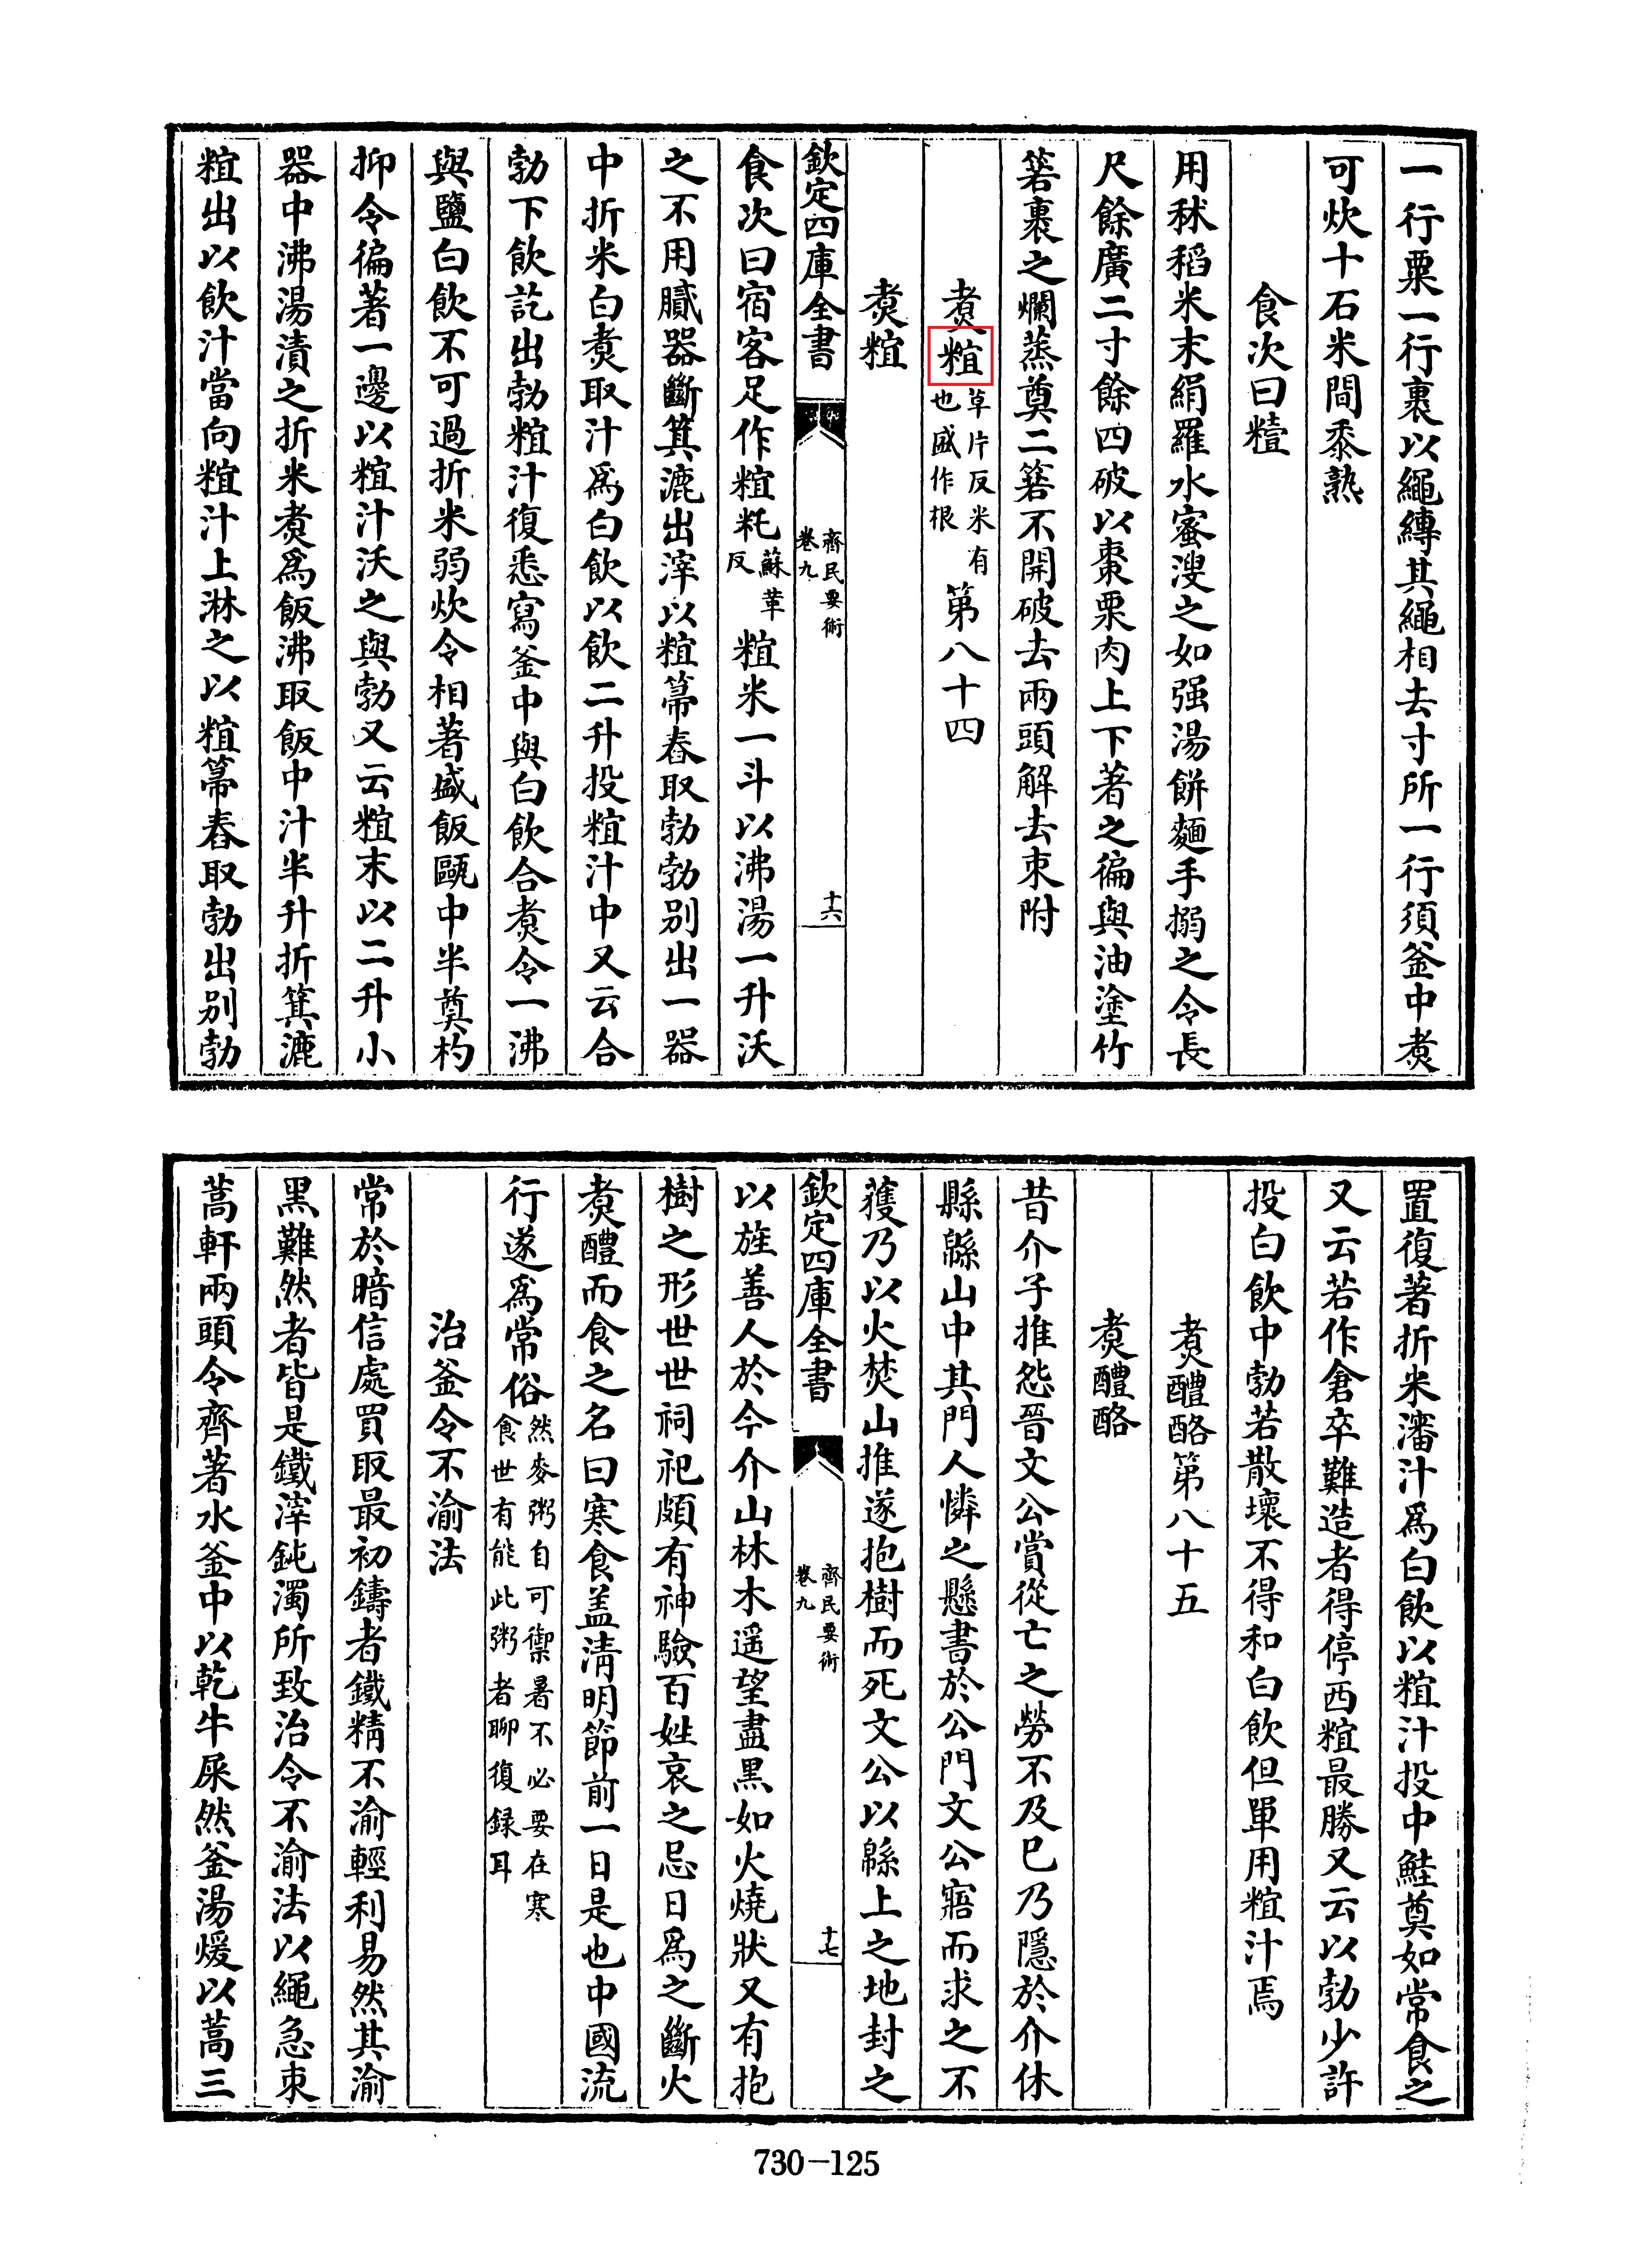 一行粟一行裹以繩縛其繩相去寸所一行須釜中煑
可炊十石米間黍熟
食次曰糦
用秫稻米末絹羅水蜜溲之如强湯餅麵手搦之令長
尺餘廣二寸餘四破以棗栗肉上下著之徧與油塗竹
箬裹之爛蒸奠二箬不開破去兩頭解去束附
煑⿰米宜草片反米有也盛作根第八十四
煑⿰米宜
欽定四庫全書
齊民要術
卷九
十六
食次曰宿客足作⿰米宜粍蘇葷反⿰米宜米一斗以沸湯一升沃
之不用膩器斷箕漉出滓以⿰米宜箒舂取勃勃别出一器
中折米白煑取汁爲白飲以飲二升投⿰米宜汁中又云合
勃下飲訖出勃⿰米宜汁復悉寫釜中與白飲合煑令一沸
與鹽白飲不可過折米弱炊令相著盛飯甌中半奠杓
抑令徧著一邊以⿰米宜汁沃之與勃又云⿰米宜末以二升小
器中沸湯漬之折米煑爲飯沸取飯中汁半升折箕漉
⿰米宜出以飲汁當向⿰米宜汁上淋之以⿰米宜箒舂取勃出别勃
置復著折米瀋汁爲白飲以⿰米宜汁投中鮭奠如常食之
又云若作倉卒難造者得停西⿰米宜最勝又云以勃少許
投白飲中勃若散壞不得和白飲但單用⿰米宜汁焉
煑醴酪第八十五
煑醴酪
昔介子推怨晉文公賞從亡之勞不及已乃隱於介休
縣緜山中其門人憐之懸書於公門文公寤而求之不
獲乃以火焚山推遂抱樹而死文公以緜上之地封之
欽定四庫全書
齊民要術
卷九
十七
以旌善人於今介山林木遥望盡黑如火燒狀又有抱
樹之形世世祠祀頗有神驗百姓哀之忌日爲之斷火
煑醴而食之名曰寒食盖清明節前一日是也中國流
行遂爲常俗然麥粥自可禦暑不必要在寒食世有能此粥者聊復録耳
治釜令不渝法
常於暗信處買取最初鑄者鐵精不渝輕利易然其渝
黑難然者皆是鐵滓鈍濁所致治令不渝法以繩急束
蒿軒兩頭令齊著水釜中以乾牛屎然釜湯煖以蒿三
730-125